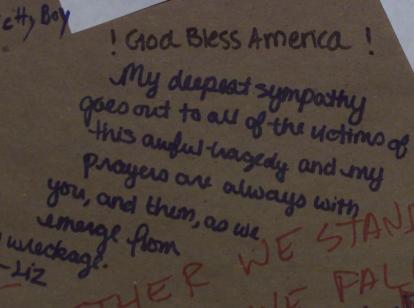 etty Boy
! God Bless America !
My deepest sympathy
goes out to all of the victims of
this awful tragedy and my
prayers are always with
you, and them, as we
emerge from
wreckage.
-Liz
WE STAND
WE FALL